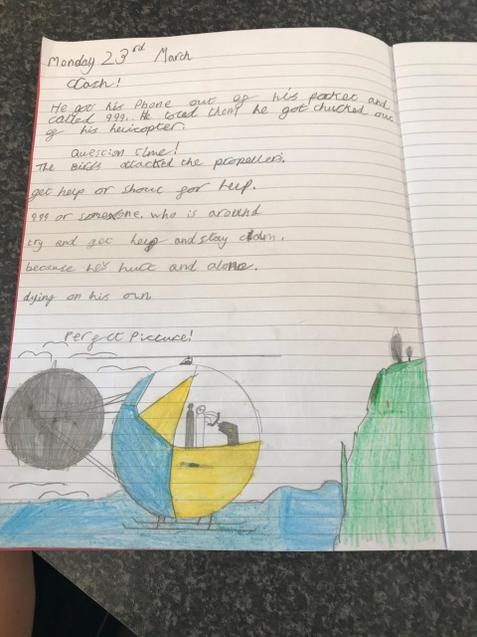 Monday 23rd March
Crash!
He got his Phone out of his pocket and
called 999. He toled them he got chucked out
of his helicopter.
Question time!
The Birds attacked the propellers.
get help or shout for help.
999 or someone. who is around
try and get help and stay calm.
because he's hurt and alone.
dying on his own
Perfect Picture!